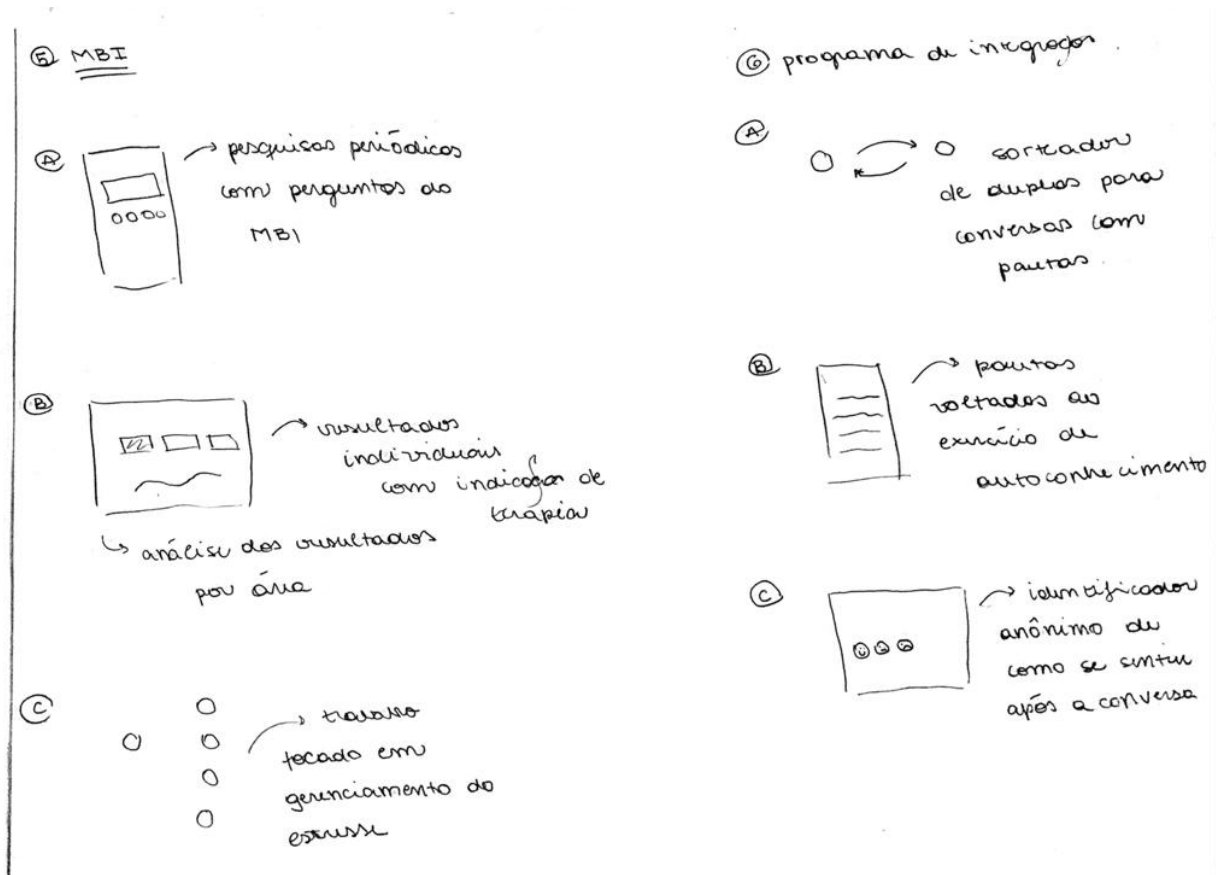 5 MBI
A
pesquisas periódicas
com perguntas do
MBI
B
resultados
individuais
com indicação de
terápia
análise dos resultados
por área
C
trabalho
focado em
gerenciamento do
estresse
6 programa de integração.
A
sorteador
de duplas para
conversas com
pautas.
B
pautas
voltadas ao
exercício de
autoconhecimento
C
identificador
anônimo de
como se sentiu
após a conversa